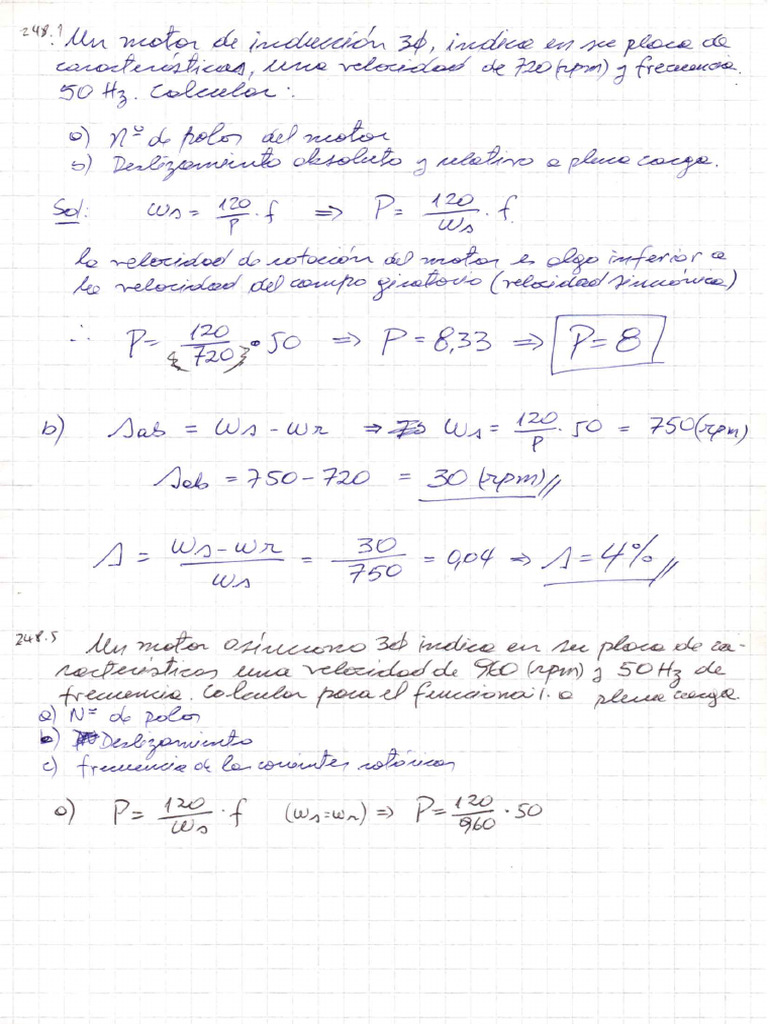 248.1 Un motor de inducción 3ϕ, indica en su placa de
características, una velocidad de 720 (rpm) y frecuencia
50 Hz. Calcular:
a) Nº de polos del motor
b) Deslizamiento absoluto y relativo a plena carga.
Sol: ωs = 120/P · f ⇒ P = 120/ωs · f
la velocidad de rotación del motor es algo inferior a
la velocidad del campo giratorio (velocidad sincrónica)
∴ P = 120/{720} · 50 ⇒ P = 8,33 ⇒ P = 8
b) sab = ωs - ωr ⇒ ωs = 120/P · 50 = 750 (rpm)
sab = 750 - 720 = 30 (rpm)//
s = (ωs - ωr)/ωs = 30/750 = 0,04 ⇒ s = 4%//
248.5 Un motor asíncrono 3ϕ indica en su placa de ca-
racterísticas una velocidad de 960 (rpm) y 50 Hz de
frecuencia. Calcular para el a plena carga.
a) Nº de polos
b) Deslizamiento
c) frecuencia de las corrientes rotóricas
a) P = 120/ωs · f (ωs = ωr) ⇒ P = 120/960 · 50